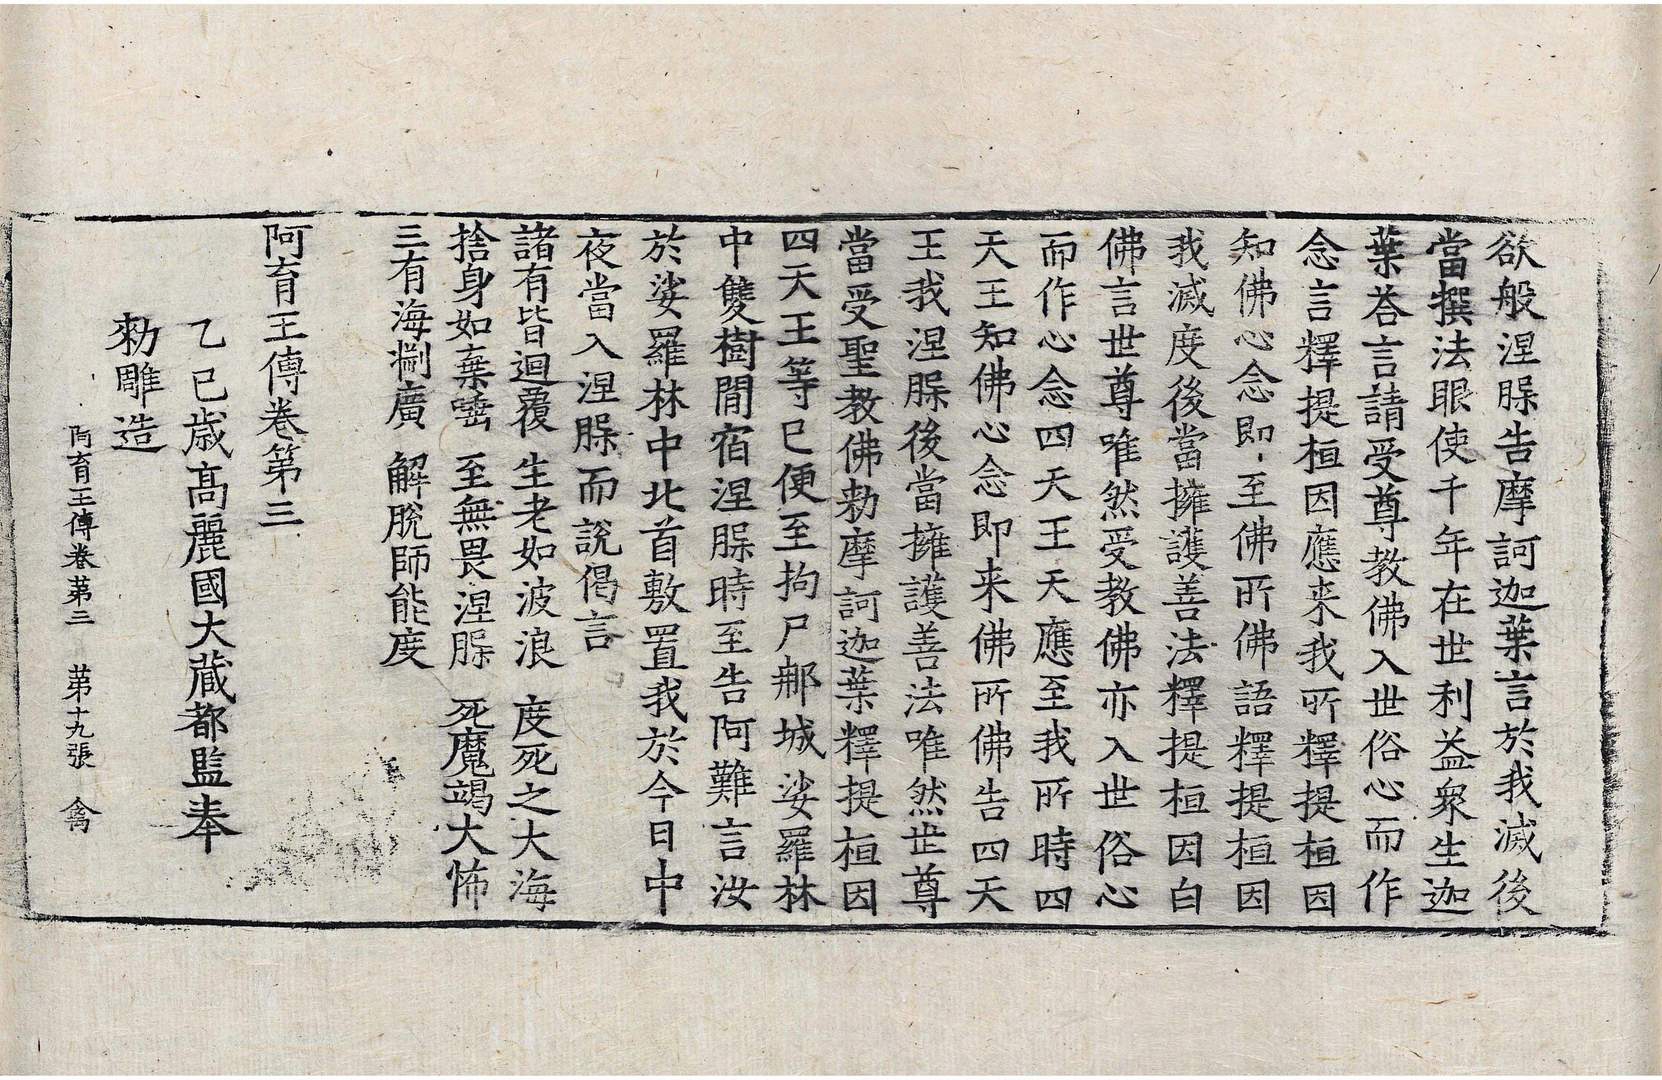 欲般涅槃告摩訶迦葉言於我滅後
當撰法眼使千年在世利益衆生迦
葉荅言請受尊教佛入世俗心而作
念言釋提桓因應来我所釋提桓因
知佛心念即至佛所佛語釋提桓因
我滅度後當擁護善法釋提桓因白
佛言世尊唯然受教佛亦入世俗心
而作心念四天王天應至我所時四
天王知佛心念即来佛所佛告四天
王我涅槃後當擁護善法唯然世尊
當受聖教佛勑摩訶迦葉釋提桓因
四天王等已便至拘尸那城娑羅林
中雙樹間宿涅槃時至告阿難言汝
於娑羅林中北首敷置我於今日中
夜當入涅槃而說偈言
諸有皆迴覆 生老如波浪 度死之大海
捨身如棄唾 至無畏涅槃 死魔竭大怖
三有海㓰廣 解脫師能度
阿育王傳卷第三
乙巳歲高麗國大藏都監奉
勑雕造
阿育王傳卷第三 第十九張 禽